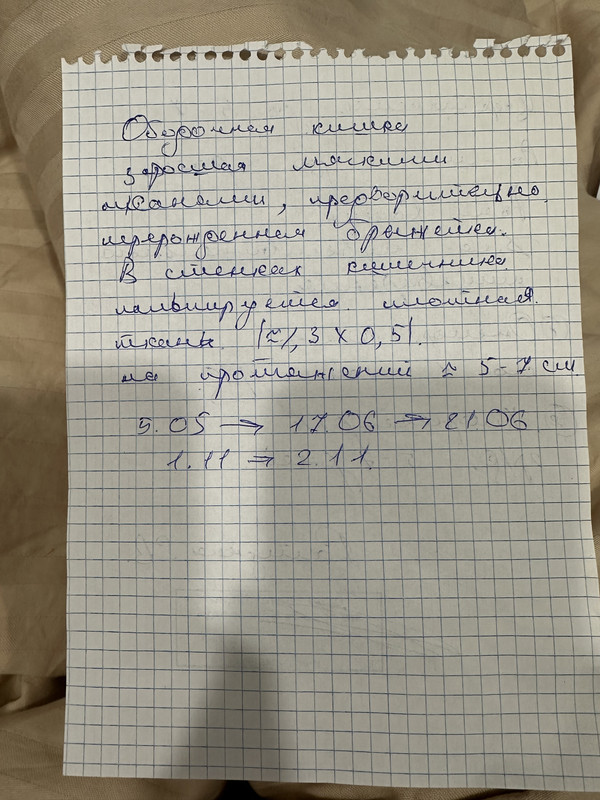 Ободочная кишка
заросшая мягкими
тканами, предварительно
перерожденная брыжейка.
В стенках кишечника
пальпируется плотная
ткань (≈1,3 х 0,5).
на протяжений ≈ 5-7 см
5.05 → 17.06 → 21.06
1.11 → 2.11.